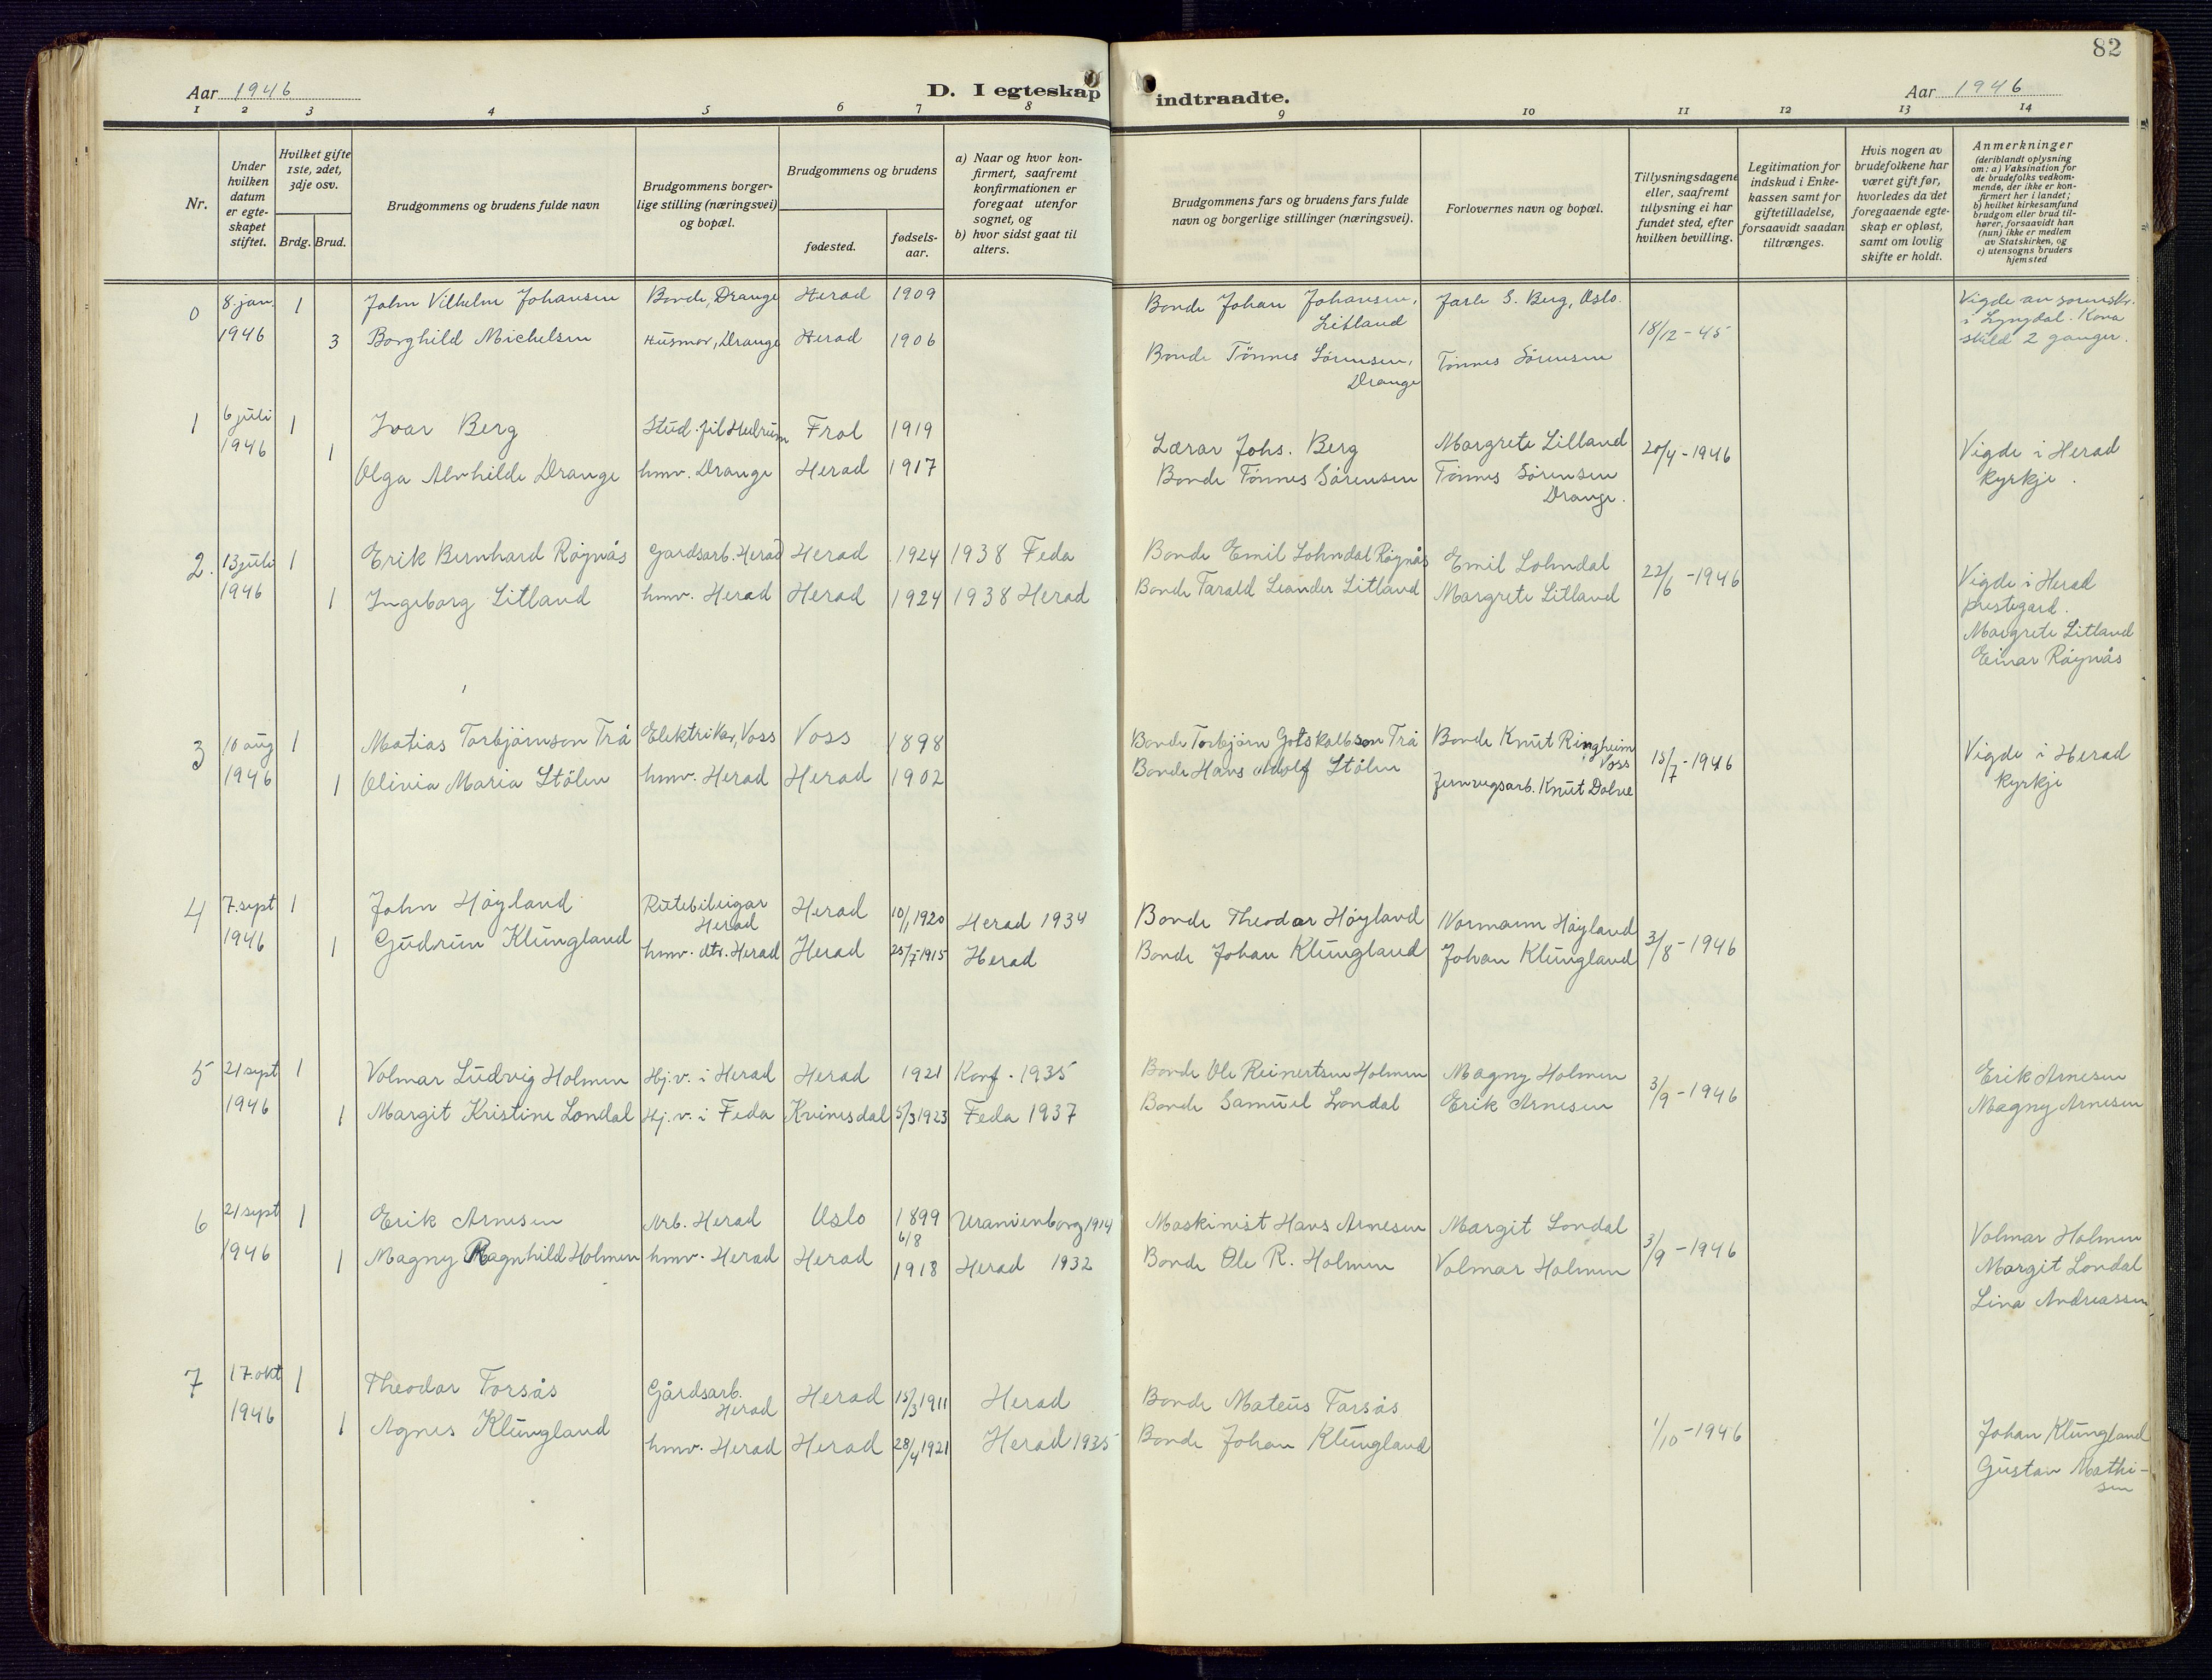 82
Aar 1946
D. I egteskap indtraadte.
Aar 1946
1 2 3 4 5 6 7 8 9 10 11 12 13 14
Nr.
Under hvilken datum er egte- skapet stiftet.
Hvilket gifte 1ste, 2det, 3dje osv.
Brdg. Brud.
Brudgommens og brudens fulde navn
Brudgommens borger- lige stilling (næringsvei) og bopæl.
Brudgommens og brudens
fødested.
fødsels- aar.
a) Naar og hvor kon- firmert, saafremt konfirmationen er foregaat utenfor sognet, og
b) hvor sidst gaat til alters.
Brudgommens fars og brudens fars fulde navn og borgerlige stillinger (næringsvei).
Forlovernes navn og bopæl.
Tillysningsdagene eller, saafremt tillysning ei har fundet sted, efter hvilken bevilling.
Legitimation for indskud i Enke- kassen samt for giftetilladelse, forsaavidt saadan tiltrænges.
Hvis nogen av brudefolkene har været gift før, hvorledes da det foregaaende egte- skap er opløst, samt om lovlig skifte er holdt.
Anmerkninger
(deriblandt oplysning om: a) Vaksination for de brudefolks vedkom- mende, der ikke er kon- firmert her i landet;
b) hvilket kirkesamfund brudgom eller brud til- hører, forsaavidt han (hun) ikke er medlem av Statskirken, og
c) utensogns bruders hjemsted
0 8. jan. 1 John Vilhelm Johansen Bonde, Drange Herad 1909 Bonde Johan Johansen, Litland Jarle S. Berg, Oslo. 18/12 - 45 Vigde av sorenskr. i Lyngdal. Kona skild 2 ganger.
1946 3 Borghild Michelsen Husmor, Drange Herad 1906 Bonde Tönnes Sörensen, Drange Tönnes Sörensen
1 6 juli 1 Ivar Berg Stud. fil Hulrum Frol 1919 Lærar Johs. Berg Margrete Litland 20/4 - 1946 Vigde i Herad kyrkje.
1946 1 Olga Alvhilde Drange hmv. Drange Herad 1917 Bonde Tönnes Sörensen Tönnes Sörensen Drange.
2. 13 juli 1 Erik Bernhard Röynås Gardsarb. Herad Herad 1924 1938 Feda Bonde Emil Lohndal Röynås Emil Lohndal 22/6 - 1946 Vigde i Herad prestegard.
1946 1 Ingeborg Litland hmv. Herad Herad 1924 1938 Herad Bonde Tarald Leander Litland Margrete Litland Margrete Litland
Einar Röynås
3 10 aug 1 Matias Torbjörnson Trå Elektrikar, Voss Voss 1898 Bonde Torbjörn Gotskalkson Trå Bonde Knut Ringheim Voss 15/7 - 1946 Vigde i Herad kyrkje
1946 1 Olivia Maria Stölen hmv. Herad Herad 1902 Bonde Hans Adolf Stölen Jernvegsarb. Knut Dolve
4 7. sept 1 John Höyland Rutebileigar Herad Herad 10/1 1920 Herad 1934 Bonde Theodor Höyland Normann Höyland 3/8 - 1946
1946 1 Gudrun Klungland hmv. dtr. Herad Herad 25/7 1915 Herad Bonde Johan Klungland Johan Klungland
5 21 sept 1 Volmar Ludvig Holmen Hj. v. i Herad Herad 1921 Konf. 1935 Bonde Ole Reinertsen Holmen Magny Holmen 3/9 - 1946 Erik Arnesen
1946 1 Margit Kristine Londal Hj. v. i Feda Kvinesdal 5/3 1923 Feda 1937 Bonde Samuel Londal Erik Arnesen Magny Arnesen
6 21 sept 1 Erik Arnesen Arb. Herad Oslo 1899 6/8 Uranienborg 1914 Maskinist Hans Arnesen Margit Londal 3/9 - 1946 Volmar Holmen
1946 1 Magny Ragnhild Holmen hmv. Herad Herad 1918 Herad 1932 Bonde Ole R. Holmen Volmar Holmen Margit Londal
Lina Andreassen
7 17. okt 1 Theodor Forsås Gårdsarb. Herad Herad 15/3 1911 Herad Bonde Mateus Forsås 1/10 - 1946 Johan Klungland
1946 1 Agnes Klungland hmv. Herad Herad 28/4 1921 Herad 1935 Bonde Johan Klungland Gustav Mathi-
sen